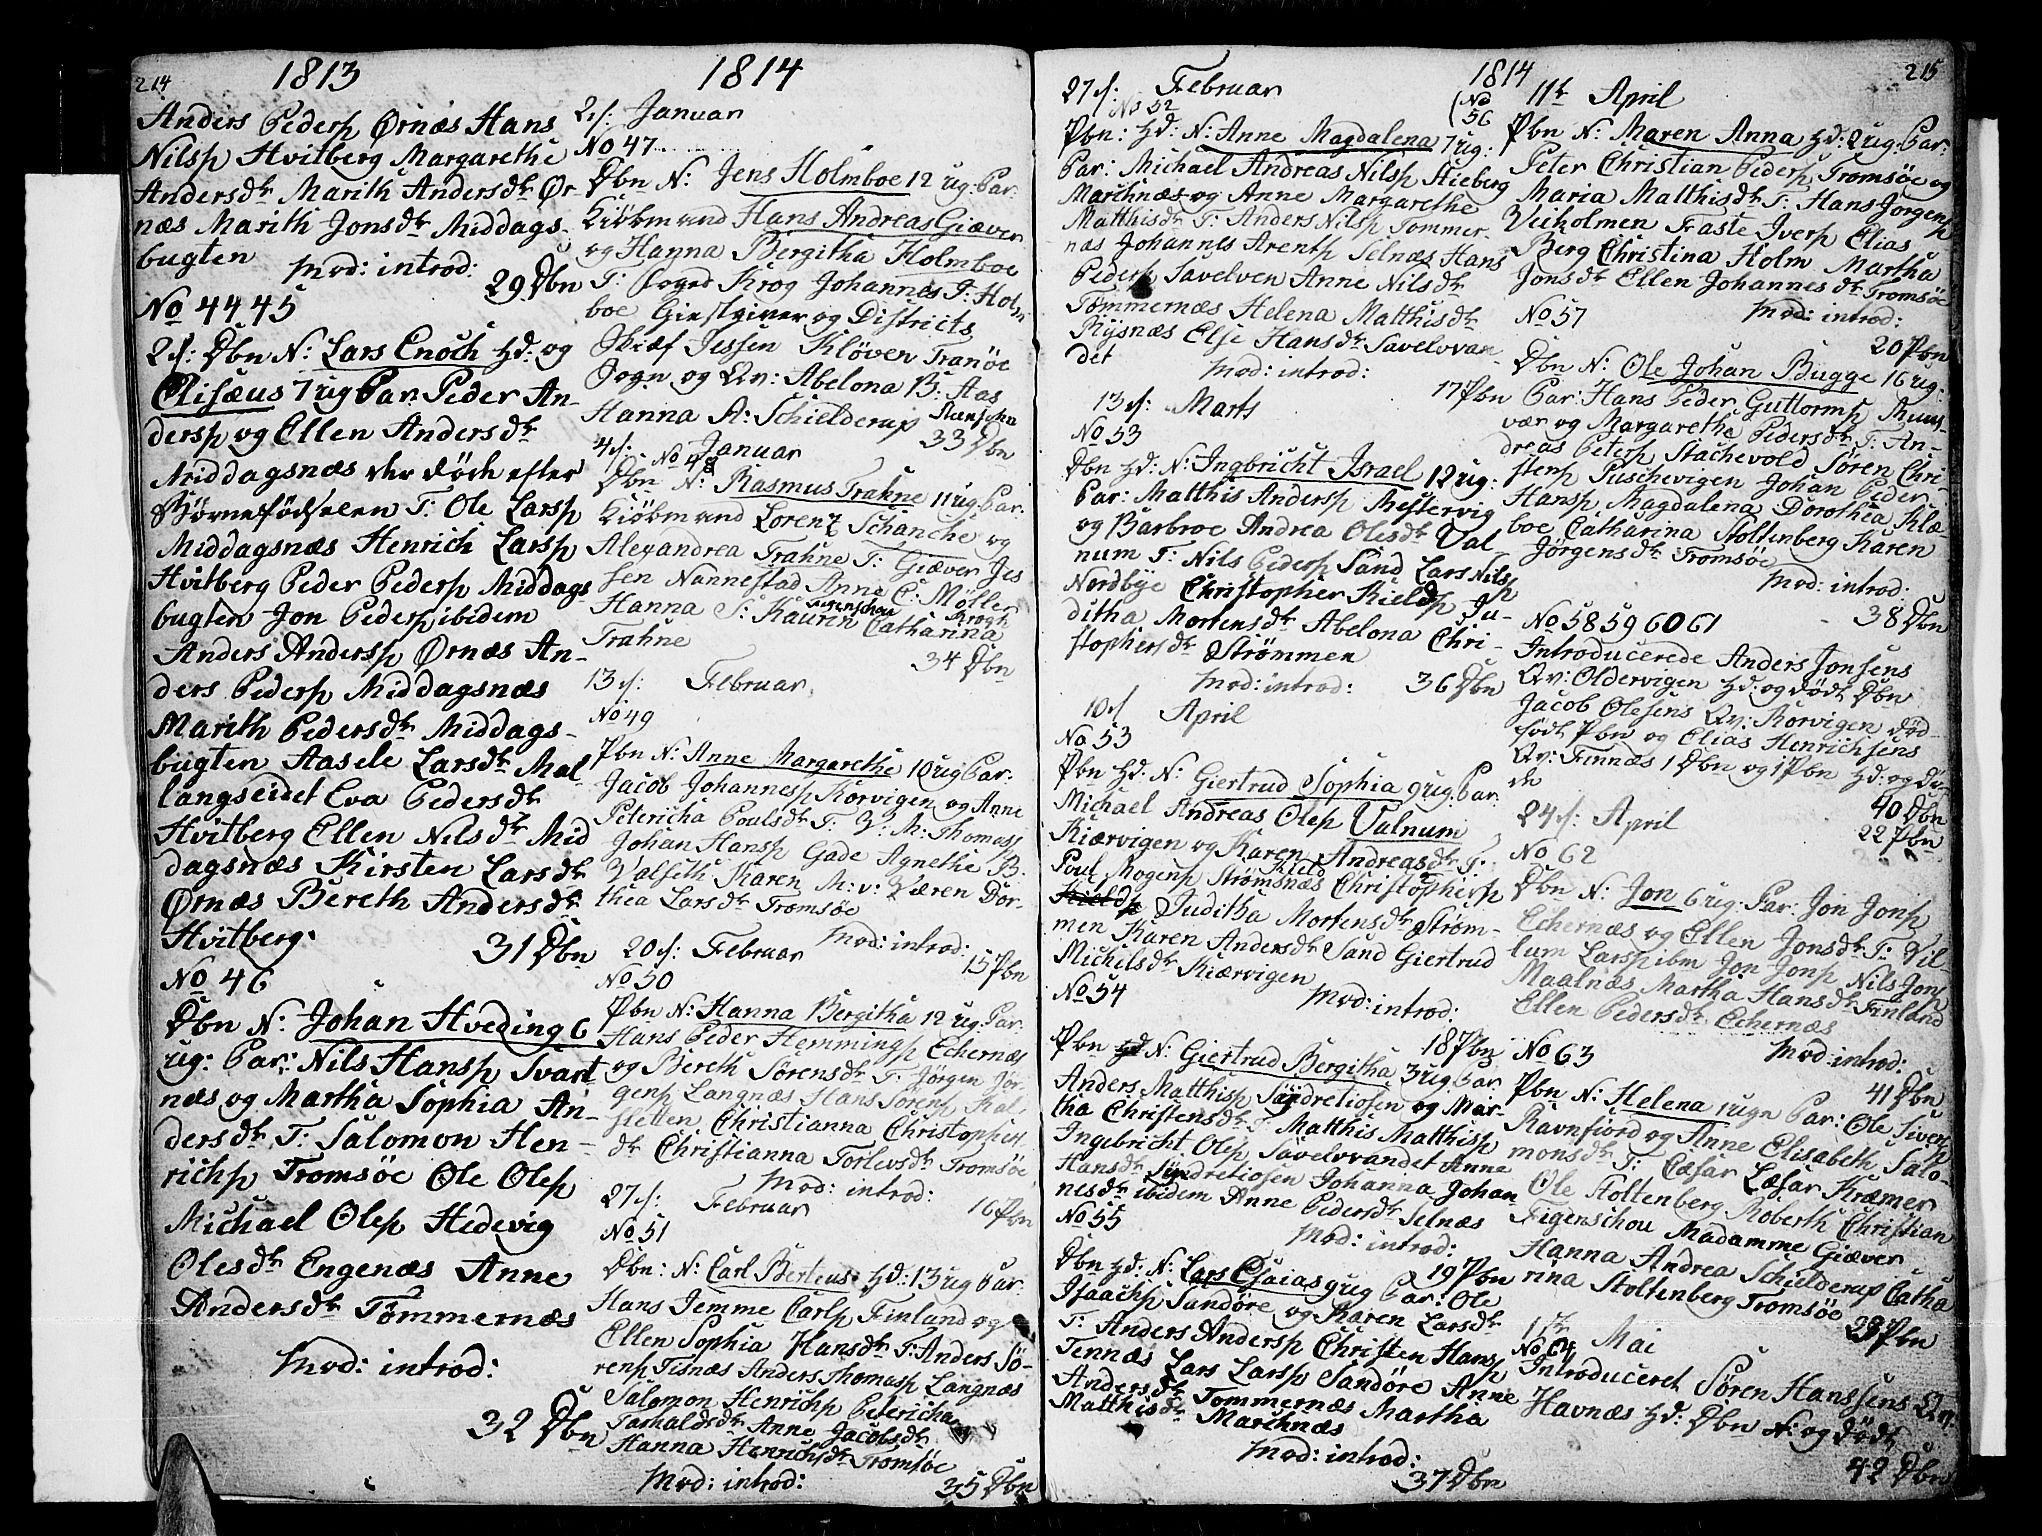 214
1813
Anders Pedersp Ørnæs Hans
Nilsp Hvitberg Margarethe
Andersdr Marith Andersdr Ør-
næs Marith Jonsdr Middags-
bugten
Mod: introd:
29 Dbn
No 44 45
2 s: Dbn N: Lars Enoch hd: og
Elisæus 7 ug Par: Peder An-
dersp og Ellen Andersdr
Middagsnæs der døde efter
Børnefödselen T: Ole Larsp
Middagsnæs Henrich Larsp
Hvitberg Peder Pedersp Middags
bugten Jon Pedersp ibidem
Anders Andersp Ørnæs An-
ders Pedersp Middagsnæs
Marith Pedersdr Middags-
bugten Aasele Larsdr Mal-
langseidet Eva Pedersdr
Hvitberg Ellen Nilsdr Mid
dagsnæs Kirsten Larsdr
Ørnæs Bereth Andersdr
Hvitberg.
31 Dbn
No 46
Dbn N: Johan Hveding 6
ug: Par: Nils Hansp Svart-
næs og Martha Sophia An-
dersdr T: Salomon Hen-
richp Tromsöe Ole Olep
Michael Olep Hedevig
Olesdr Engenæs Anne
Andersdr Tömmernæs
Mod: introd:
32 Dbn
1814
2 s: Januar
No 47
Dbn N: Jens Holmboe 12 ug: Par:
Kiöbmand Hans Andreas Giæver
og Hanna Bergitha Holmboe
T: Foged Krog Johannes T: Holm
boe Giestgiver og Districts
Skief Jessen Klöven Tranöe
Sogn og Qv: Abelona B: Aas
Hanna A: Schielderup
33 Dbn
4 s: Januar
No 48
Dbn N: Rasmus Trahne 11 ug: Par:
Kiöbmand Lorenz Schanche og
Alexandrea Trahne T: Giæver Jes
sen Nannestad Anne C: Möller
Hanna S: Kaurin Catharina Krogh
Trahne
34 Dbn
13 s: Februar
No 49
Pbn N: Anne Margarethe 10 ug Par:
Jacob Johannesp Korvigen og Anne
Petericha Poulsdr T: Z: M: Thomasp
Johan Hansp Gade Agnethe B.
Valseth Karen M: v: Væren Dor-
thea Larsdr Tromsöe
Mod: introd:
15 Pbn
20 s: Februar
No 50
Pbn N: Hanna Bergitha 12 ug: Par:
Hans Peder Hemmingp Echernæs
og Bereth Sörensdr T: Jörgen Jör-
gensp Langnæs Hans Sörensp Kal-
sletten Christianna Christophers
dr Christianna Torlevsdr Tromsöe
Mod: introd:
16 Pbn
27 s: Februar
No 51
Dbn: N: Carl Berteus hd: 13 ug Par:
Hans Jemme Carlp Finlund og
Ellen Sophia Hansdr T: Anders Sö-
rensp Tisnæs Anders Thomasp Langnæs
Salomon Henrichp Petericha
Tarhaldsdr Anne Jacobsdr
Hanna Henrichsdr Tromsöe
Mod: introd:
35 Dbn
27 s: Februar
No 52
Pbn: hd: N: Anne Magdalena 7 ug:
Par: Michael Andreas Nilsp Hieberg
Marchnæs og Anne Margarethe
Matthisdr T: Anders Nilsp Tommer-
næs Johannes Arentp Selnæs Hans
Pedersp Savelven Anne Nilsdr
Tømmernæs Helena Matthisdr
Rysnæs Else Hansdr Savelvvan
det
Mod: introd:
17 Pbn
13 s: Marts
No 53
Dbn hd: N: Ingbricht Israel 12 ug:
Par: Matthis Andersp Mestervig
og Barbroe Andrea Olesdr Val-
num T: Nils Pedersp Sand Lars Nilsp
Nordbye Christopher Kieldsp Ju-
ditha Mortensdr Abelona Chri-
stophersdr Strömmen
Mod: introd:
36 Dbn
10 s April
No 53
Pbn hd: N: Giertrud Sophia 9 ug: Par:
Michael Andreas Olep Valnum
Kiærvigen og Karen Andreasdr T:
Poul Mogensp Strömsnæs Christophersp Kield
Juditha Mortensdr Ström-
men Karen Andersdr Sand Giertrud
Michelsdr Kiærvigen
Mod: introd:
18 Pbn
No 54
Pbn N: Giertrud Bergitha 3 ug: Par
Anders Matthisp Syndretiosen og Mar-
tha Christensdr T: Matthis Matthisp
Ingebricht Olep Savelvvandet Anne
Hansdr Syndretiosen Johanna Johan
nesdr ibidem Anne Pedersdr Selnæs
Mod: introd:
19 Pbn
No 55
Dbn hd: N: Lars Esaias 9 ug Par: Ole
Isaachp Sandöre og Karen Larsdr
T: Anders Andersp Christen Hansp
Tennæs Lars Larsp Sandöre Anne
Andersdr Tommernæs Martha
Matthisdr Marchnæs
Mod: introd:
37 Dbn
1814
215
No 56
11te April
Pbn N: Maren Anna hd: 2 ug: Par:
Peter Christian Pedersp Tromsöe og
Maria Matthisdr T: Hans Jörgensp
Vicholmen Faste Iversp Elias
Berg Christina Holm Martha
Jonsdr Ellen Johannesdr Tromsöe
Mod: introd:
20 Pbn
No 57
Dbn N: Ole Johan Bugge 16 ug:
Par: Hans Peder Guttormsp Mus-
vær og Margaretha Pedersdr T: An-
dreas Petersp Stachevold Sören Chri-
stensp Puschevigen Johan Peder
Hansp Magdalena Dorothea Klæ-
boe Catharina Stoltenberg Karen
Jörgensdr Tromsöe
Mod: introd:
38 Dbn
No 58 59 60 61
Introducerede Anders Jonsens
Qv: Oldervigen hd: og dödt Dbn
Jacob Olesens Qv: Korvigen död-
födt Pbn og Elias Henrichsens
Qv: Finnæs 1 Dbn og 1 Pbn hd: og dö-
de
40 Dbn
22 Pbn
24 s: April
No 62
Dbn N: Jon 6 ug: Par: Jon Jonsp
Echernæs og Ellen Jonsdr T: Vil-
lum Larsp ibm Jon Jonsp Nils Jonsp
Maalnæs Martha Hansdr Finland
Ellen Pedersdr Echernæs
Mod: introd:
41 Dbn
No 63
Pbn N: Helena 1 ugn Par: Ole Sivertp
Ravnfiord og Anne Elisabeth Salo-
monsdr T: Cæsar Læsar Kræmer
Ole Stoltenberg Roberth Christian
Figenschou Madamme Giæver
Hanna Andrea Schielderup Catha
rina Stoltenberg Tromsöe
23 Pbn
1ste Mai
No 64
Introduceret Sören Hanssens Qv:
Havnæs hd: Dbn N: og dödt
42 Dbn